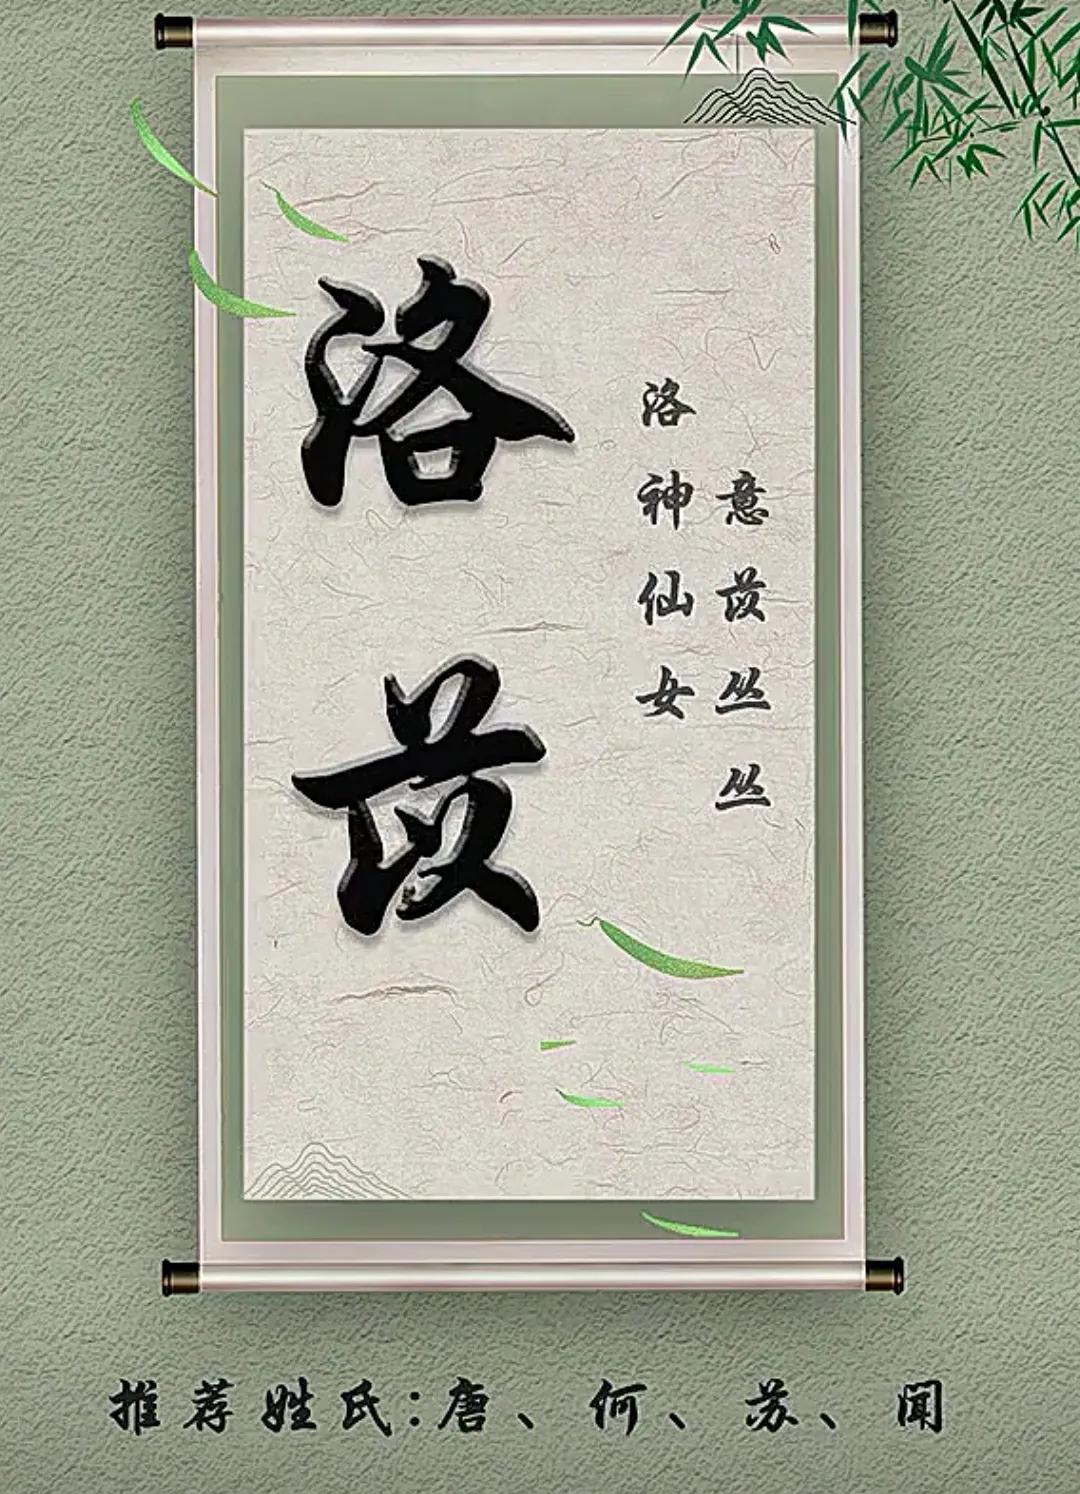 洛苡
洛神仙女
意苡丛丛
推荐姓氏:唐、何、苏、闻